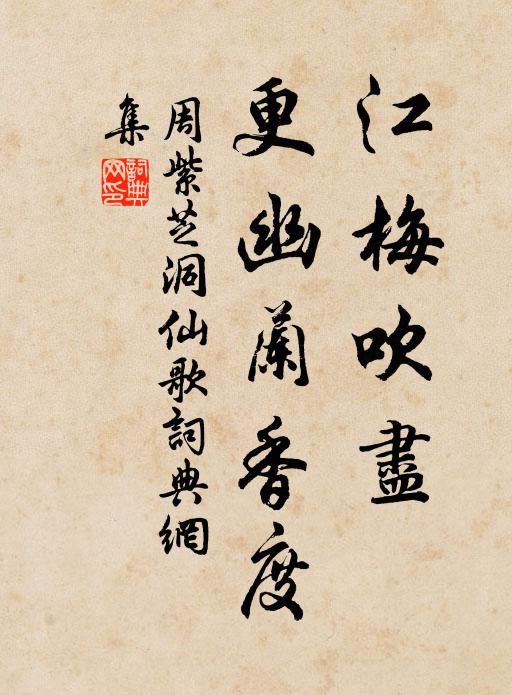 江梅吹盡
更幽蘭香度
周紫芝洞仙歌詞典網
集
詞典
网印